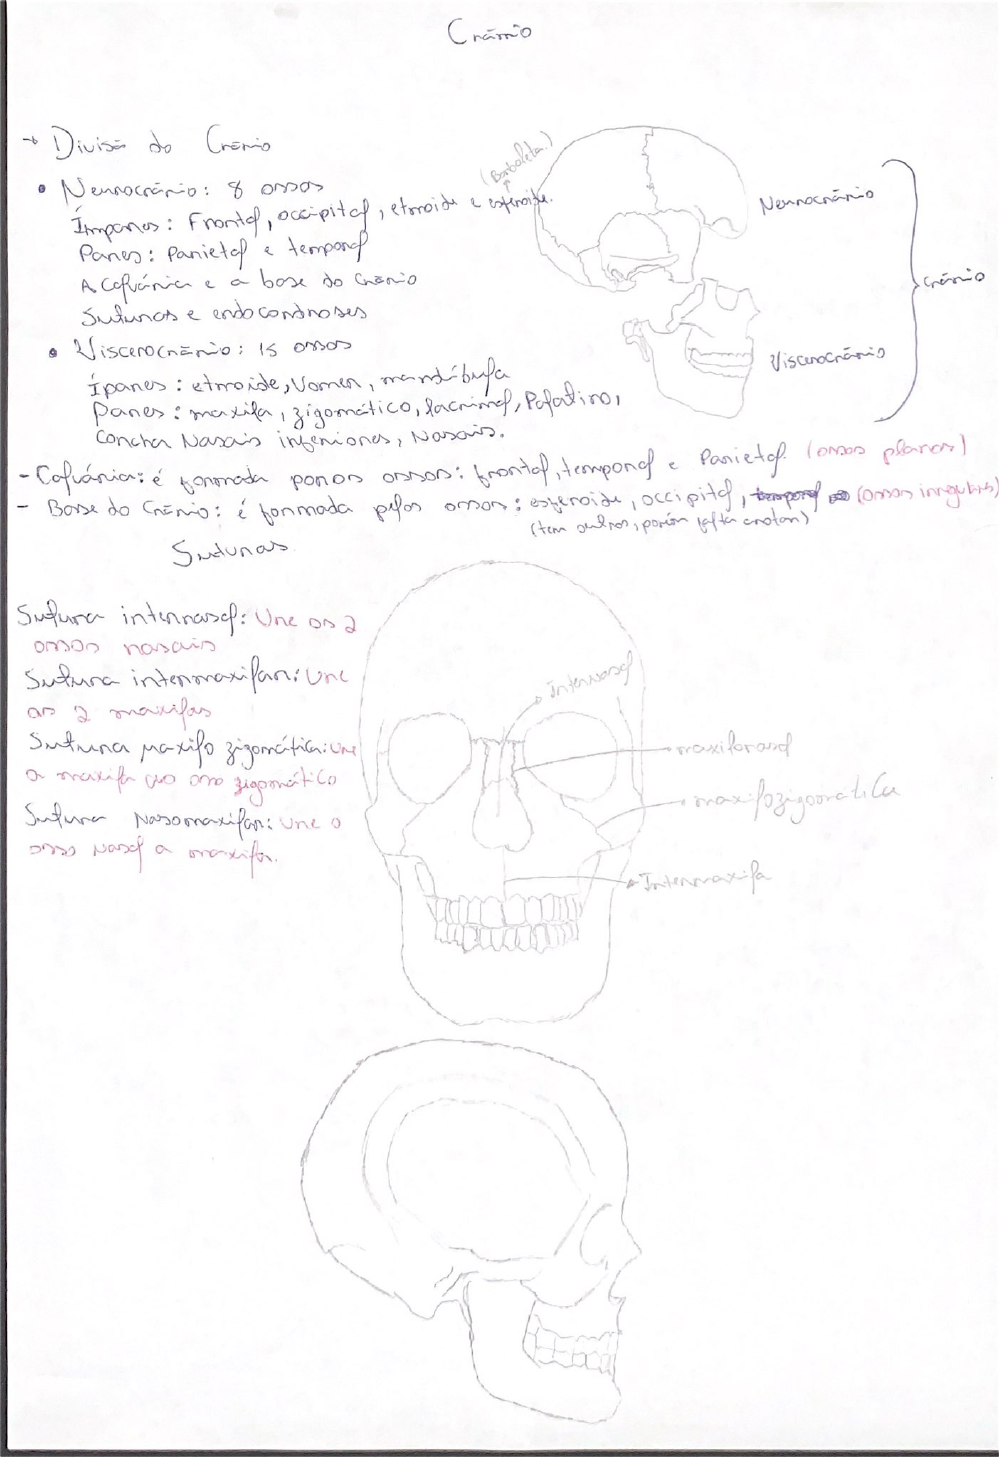 Crânio
→ Divisão do Crânio
• Neurocrânio: 8 ossos
(Borboleta)
Ímpares: Frontal, occipital, etmoide e esfenoide.
Pares: Parietal e temporal
A Calvária e a base do Crânio
Suturas e endocondroses
• Viscerocrânio: 15 ossos
Ípares: etmoide, Vomer, mandíbula
Pares: maxila, zigomático, lacrimal, Palatino,
Concha Nasais inferiores, Nasais.
Neurocrânio
Crânio
Viscerocrânio
- Calvária: é formada por os ossos: frontal, temporal e Parietal. (ossos planos)
- Base do Crânio: é formada pelos ossos: esfenoide, occipital, temporal (ossos irregulares)
(tem outros, porém falta anotar)
Suturas
Sutura internasal: Une os 2
ossos nasais
Sutura intermaxilar: Une
as 2 maxilas
Sutura maxilo zigomática: une
a maxila ao osso zigomático
Sutura Nasomaxilar: Une o
osso Nasal a maxila.
Internasal
maxilonasal
maxilozigomatica
Intermaxila